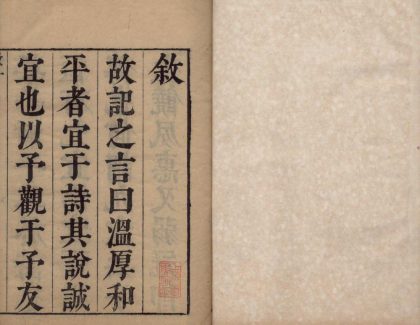 敘
故記之言曰溫厚和
平者宜于詩其說誠
宜也以予觀于予友